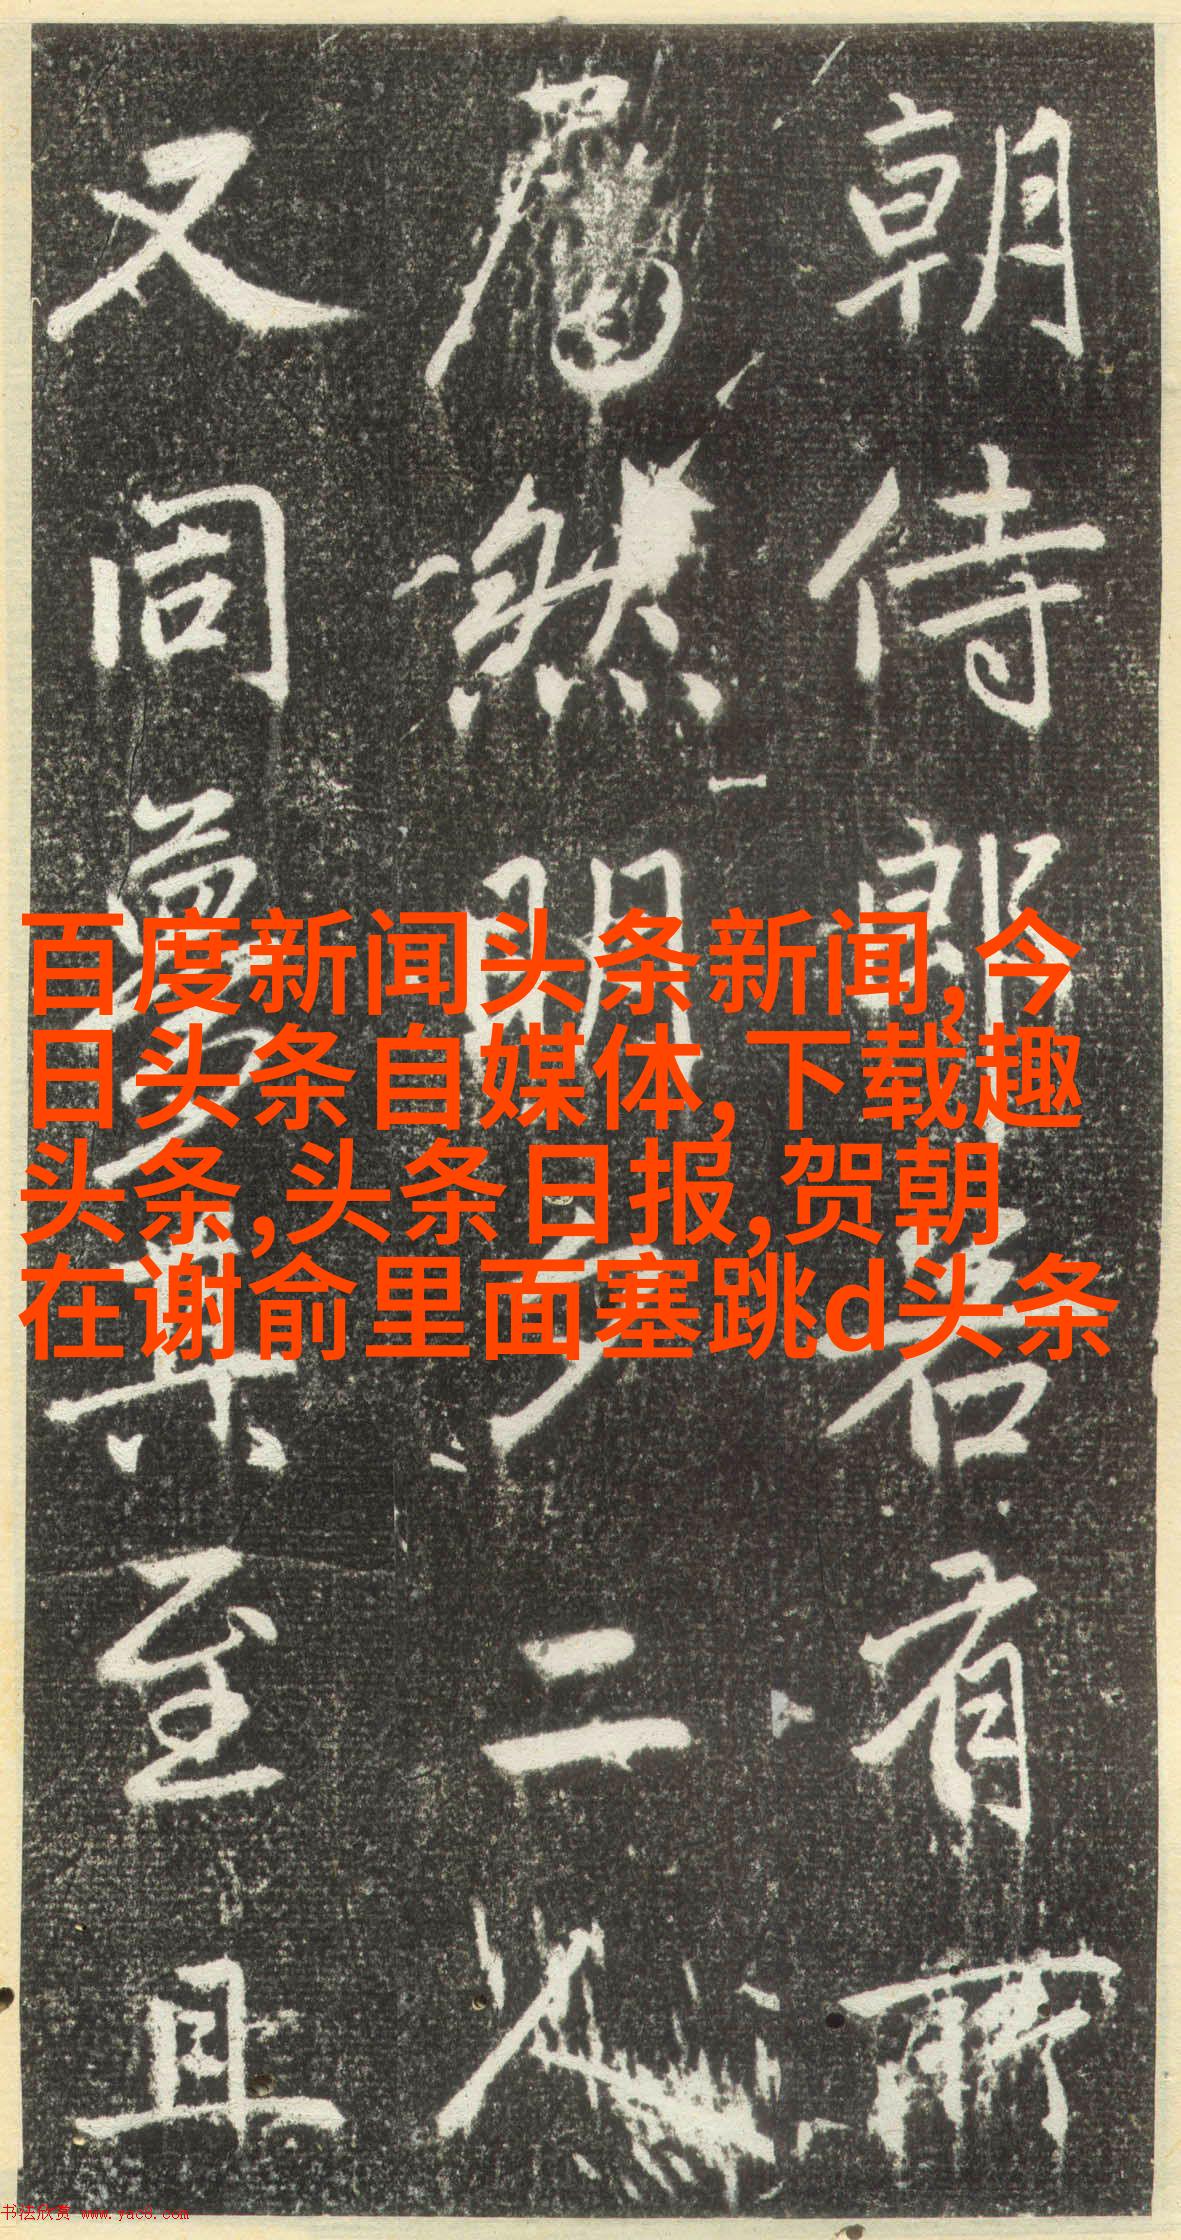 朝侍郎若有所
然明二人
又同夢其至且
百度新闻头条新闻,今
日头条自媒体,下载趣
头条,头条日报,贺朝
在谢俞里面塞跳d头条
书法欣赏 www.yac8.com